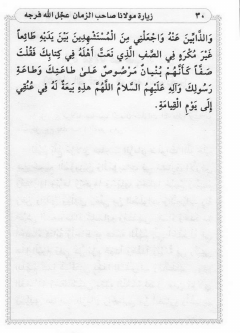 ٣٠ زيارة مولانا صاحب الزمان عجل الله فرجه
وَالذَّابِّينَ عَنْهُ وَاجْعَلْنِي مِنَ الْمُسْتَشْهَدِينَ بَيْنَ يَدَيْهِ طَائِعاً
غَيْرَ مُكْرَهٍ فِي الصَّفِّ الَّذِي نَعَتَّ أَهْلَهُ فِي كِتَابِكَ فَقُلْتَ
صَفًّا كَأَنَّهُمْ بُنْيَانٌ مَرْصُوصٌ عَلَىٰ طَاعَتِكَ وَطَاعَةِ
رَسُولِكَ وَآلِهِ عَلَيْهِمُ السَّلَامُ اللَّهُمَّ هذِهِ بَيْعَةٌ لَهُ فِي عُنُقِي
إِلَىٰ يَوْمِ الْقِيَامَةِ.